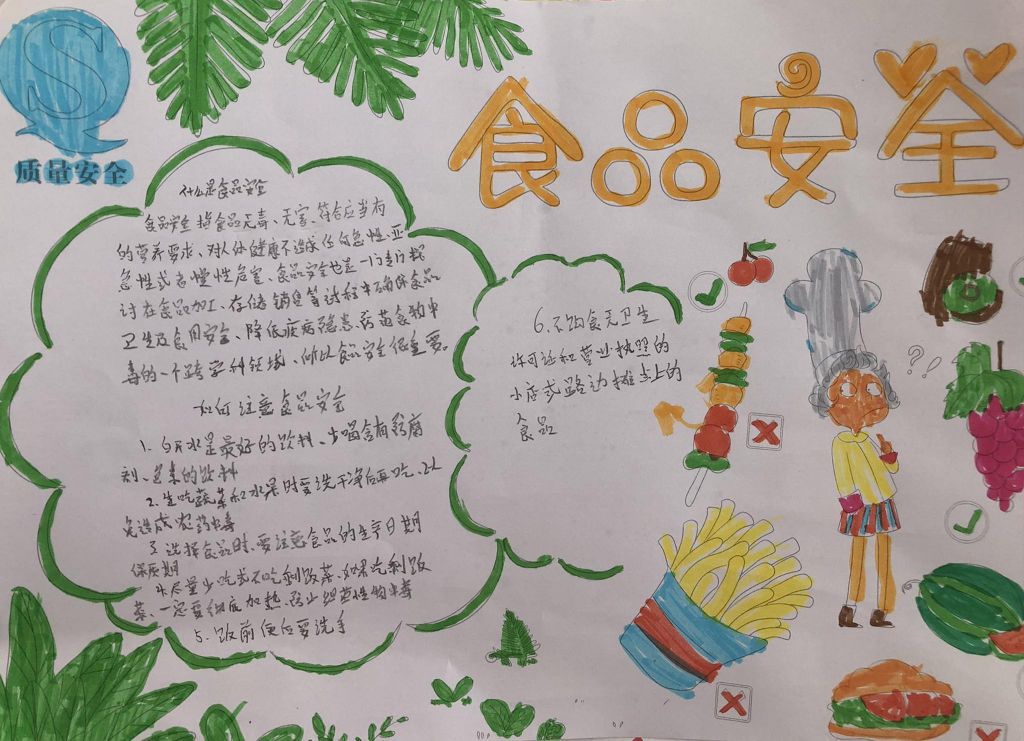 S
质量安全
食品安全
什么是食品安全
食品安全指食品无毒、无害、符合应当有
的营养要求、对人体健康不造成任何急性、亚
急性或者慢性危害、食品安全也是一门专门探
讨在食品加工、存储、销售等过程中确保食品
卫生及食用安全、降低疾病隐患、防范食物中
毒的一个跨学科领域、所以食品安全很重要。
如何注意食品安全
1. 白开水是最好的饮料、少喝含有防腐
剂、色素的饮料
2. 生吃蔬菜和水果时要洗干净后再吃、以
免造成农药中毒
3. 选择食品时、要注意食品的生产日期
保质期
4. 尽量少吃或不吃剩饭菜、如果吃剩饭
菜、一定要彻底加热、防止细菌性物中毒
5. 饭前便后要洗手
6. 不购食无卫生
许可证和营业执照的
小店或路边摊点上的
食品
?!